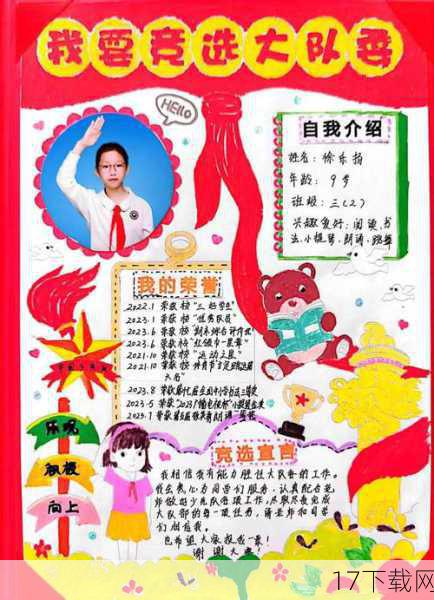 我要竞选大队委
HELLO
自我介绍
年龄: 9岁
班级: 三(2)
兴趣爱好: 阅读,书
法,小提琴,朗诵,跳舞
我的荣誉
2022.1 荣获校"三好学生"
2023.1 荣获校"优秀队员"
2023.6 荣获校
2023.6 荣获校"红领巾一星章"
2021.10 荣获校"运动之星"
2021.10 荣获校
2023.8 荣获
2023.5 荣获
2023.7 荣获
乐观
积极
向上
竞选宣言
我相信我有能力胜任大队委的工作。
我会热心为同学们服务,认真配合老
师做好少先队各项工作,尽职尽责完成
大队部的每一项任务,请老师和同学
们相信我。
也希望大家投我一票!
谢谢大家!
17下载网